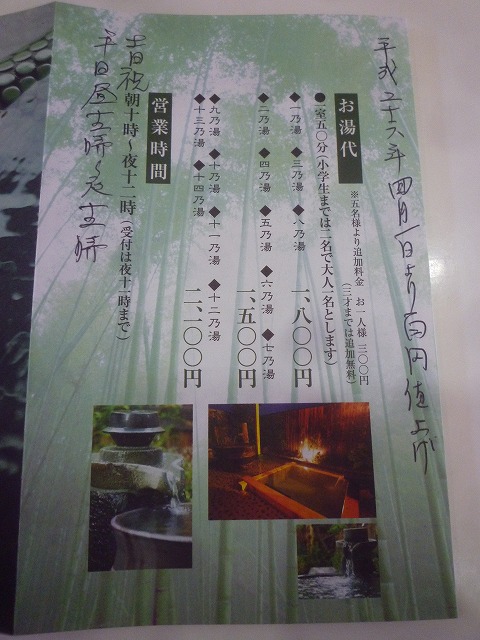 平成二十六年四月一日より百円値上げ
お湯代
※五名様より追加料金 お一人様 三〇〇円
(三才までは追加無料)
●一室五〇分(小学生までは二名で大人一名とします)
◆一乃湯 ◆三乃湯 ◆八乃湯
一、八〇〇円
◆二乃湯 ◆四乃湯 ◆五乃湯 ◆六乃湯 ◆七乃湯
一、五〇〇円
◆九乃湯 ◆十一乃湯 ◆十二乃湯
◆十三乃湯 ◆十四乃湯
二、一〇〇円
営業時間
土日祝
朝十時〜夜十二時(受付は夜十一時まで)
平日昼十二時〜夜十二時